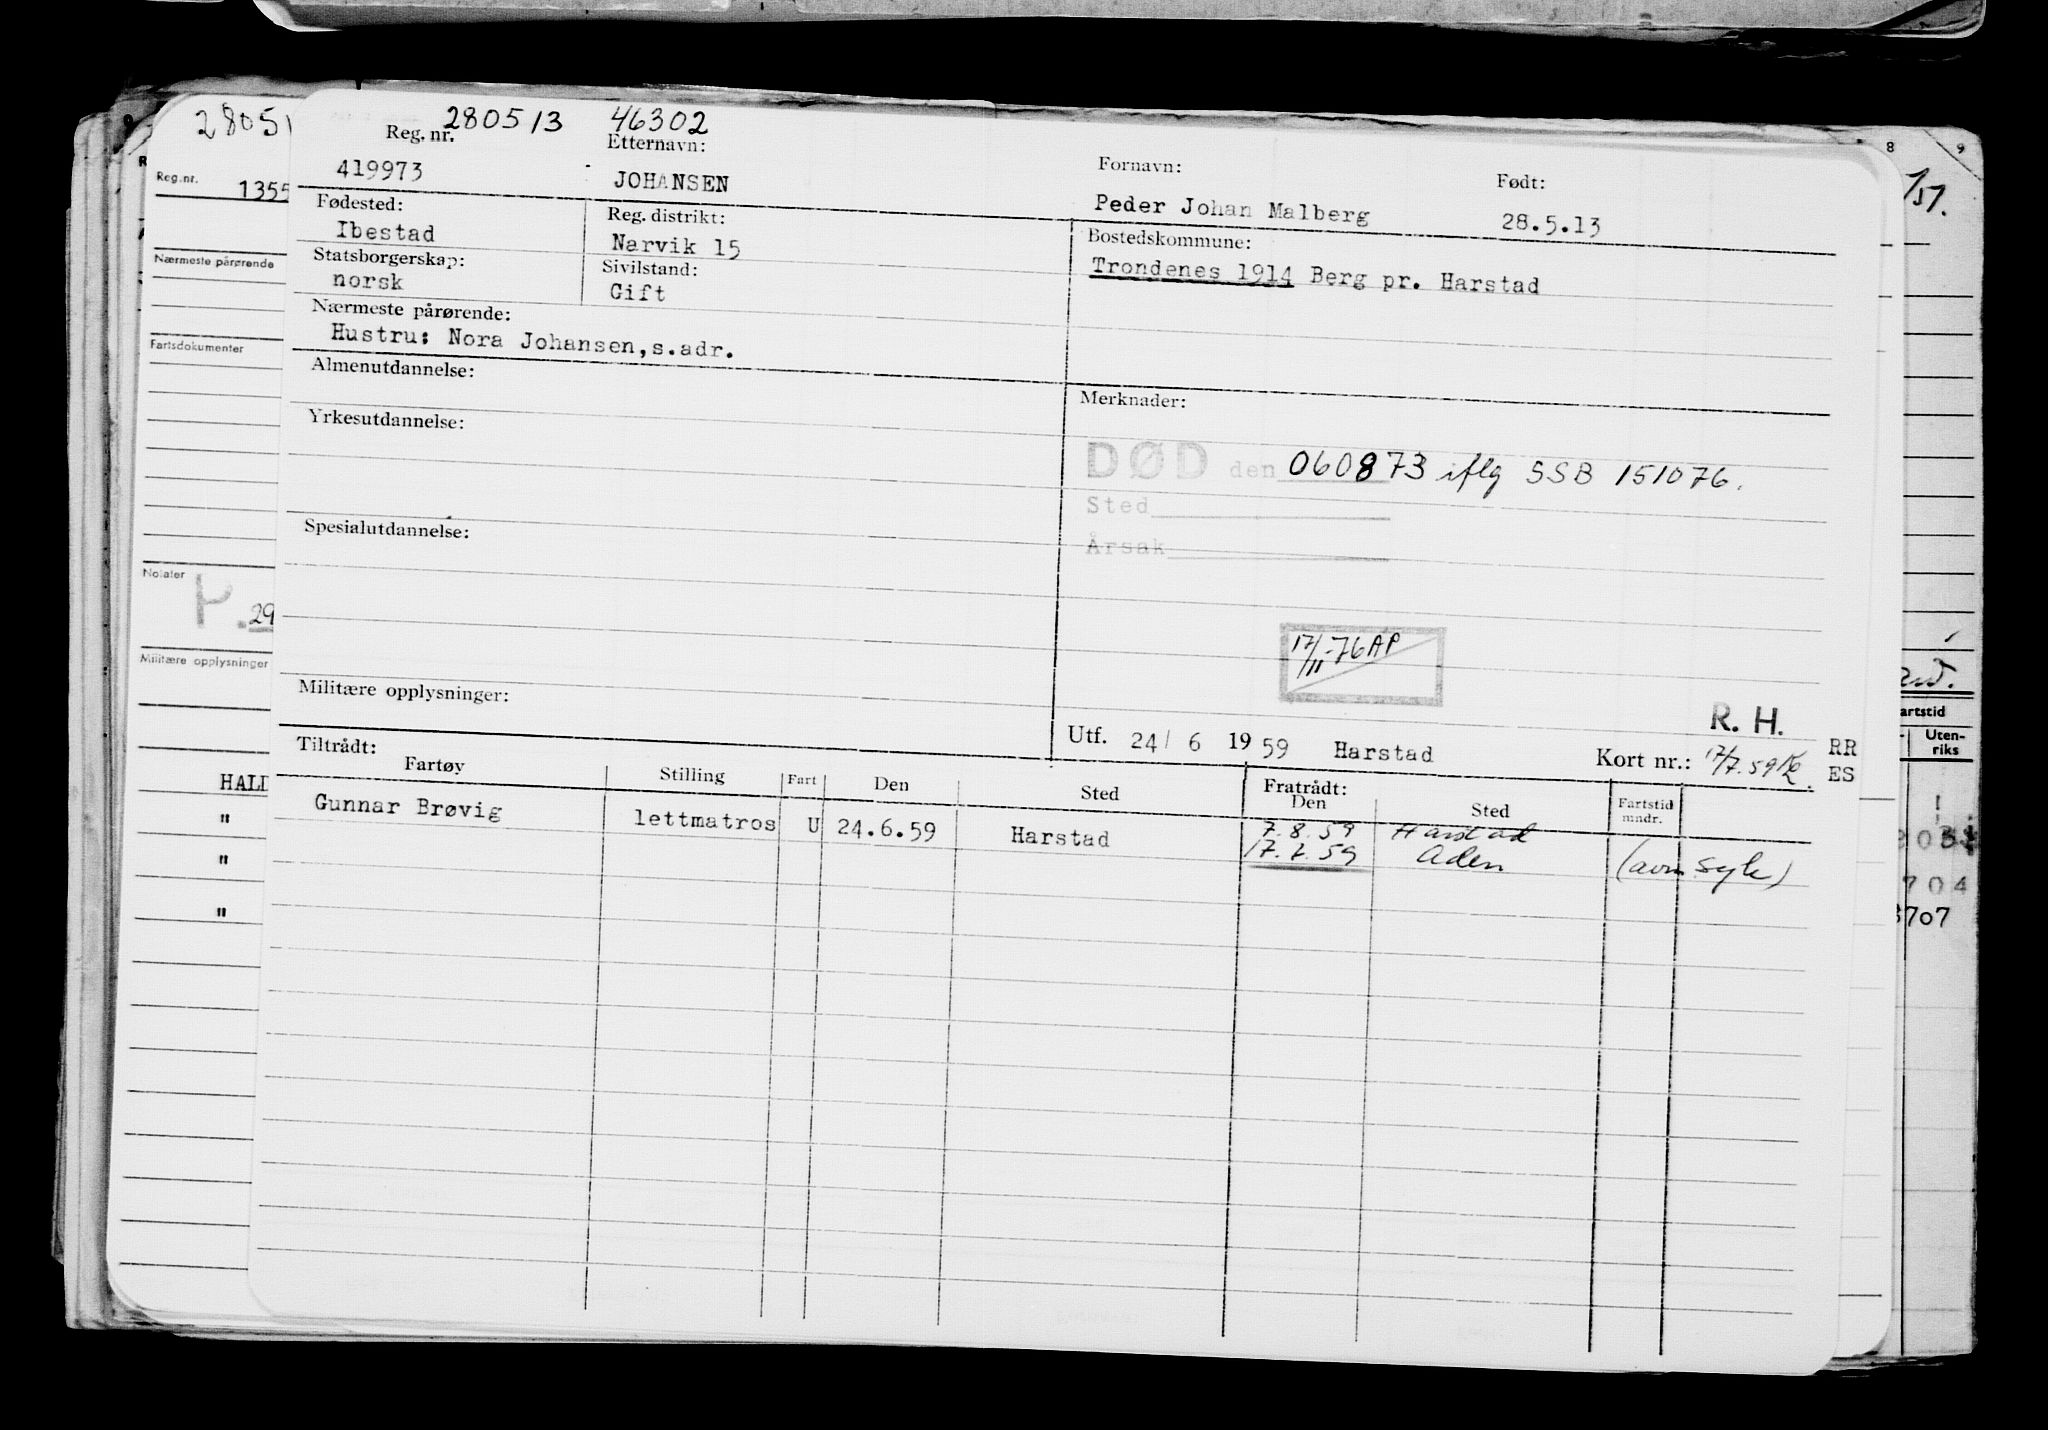 280513 46302
Reg. nr. Etternavn: Fornavn: Født:
419973 JOHANSEN Peder Johan Malberg 28.5.13
Fødested: Reg. distrikt: Bostedskommune:
Ibestad Narvik 15 Trondenes 1914 Berg pr. Harstad
Statsborgerskap: Sivilstand:
norsk Gift
Nærmeste pårørende:
Hustru: Nora Johansen, s.adr.
Almenutdannelse: Merknader:
Yrkesutdannelse:
DØD den 060873 iflg SSB 151076.
Sted
Årsak
Spesialutdannelse:
17/11-76 AP
Militære opplysninger:
R. H.
Utf. 24/ 6 19 59 Harstad Kort nr.: 17/7.59 RR
ES
Tiltrådt: Fratrådt:
Fartøy Stilling Fart Den Sted Den Sted Fartstid mndr.
Gunnar Brøvig lettmatros U 24.6.59 Harstad 7.8.59 Harstad
17.7.59 Aden (avm syk)
2805
Reg.nr. 1355
Nærmeste pårørende
Fartsdokumenter
Notater
P. 29
Militære opplysninger
HALD
"
"
"
8 9
/51.
artstid
Uten-
riks
704
3707